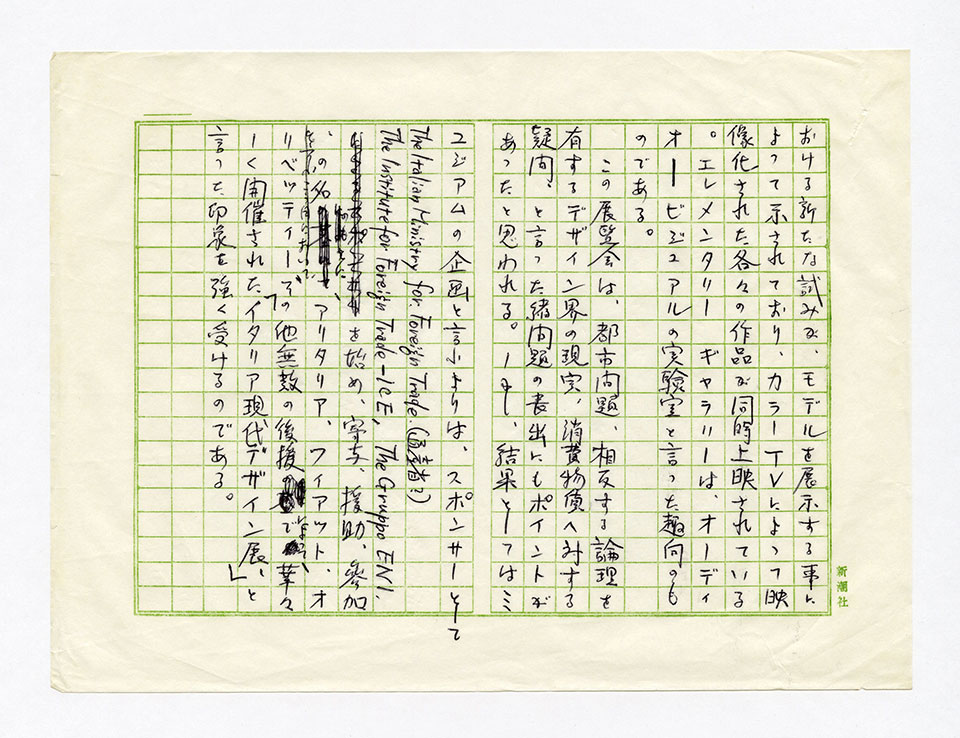 おける新たな試みが、モデルを展示する事に
よって示されており、カラーTVによって映
像化された各々の作品が同時上映されている
。エレメンタリーギャラリーは、オーディ
オービジュアルの実験室と言った趣向のも
のである。
この展覧会は、都市問題、相反する論理を
有するデザイン界の現実、消費物質へ対する
疑問、と言った緒問題の表出にもポイントが
あったと思われる。しかし、結果としてはミ
ュジアムの企画と言うよりは、スポンサーとして
The Italian Ministry for Foreign Trade.
The Institute for Foreign Trade-ICE, The Gruppo ENI.
を始め、寄与、援助、参加
の名 アリタリア、フィアット、オ
リベッティーその他無数の後援 によって、華々
しく開催された「イタリア現代デザイン展」と
言った印象を強く受けるのである。
新潮社